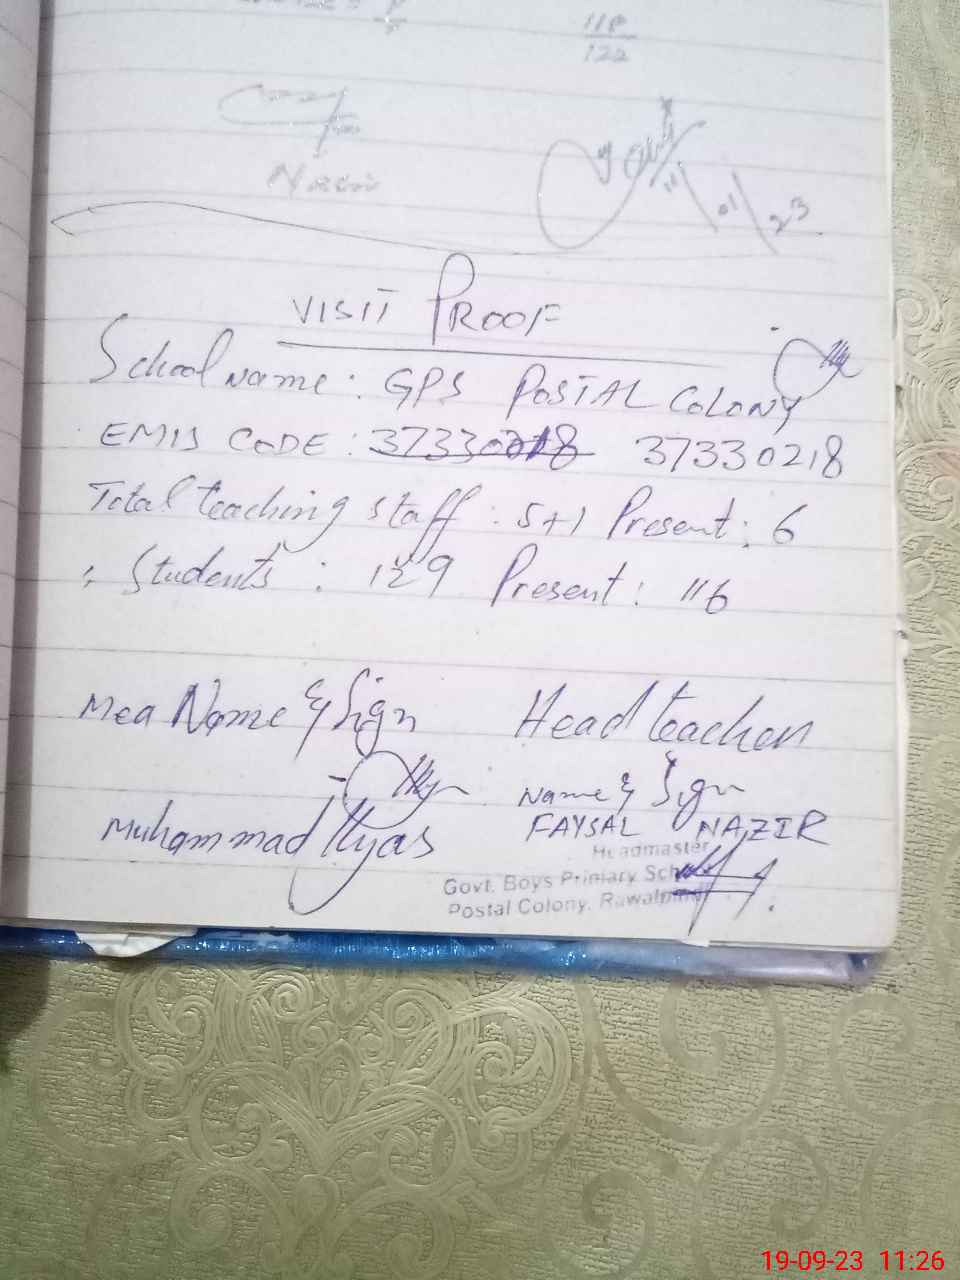 118
122
11 01 23
VISIT PROOF
School name: GPS POSTAL COLONY
EMIS CODE: 37330218 37330218
Total teaching staff: 5+1 Present: 6
Students: 129 Present: 116
Mea Name & Sign Head teacher
Name & Sign
Muhammad Ilyas FAYSAL NAZIR
Headmaster
Govt. Boys Primary School
Postal Colony, Rawalpindi
19-09-23 11:26